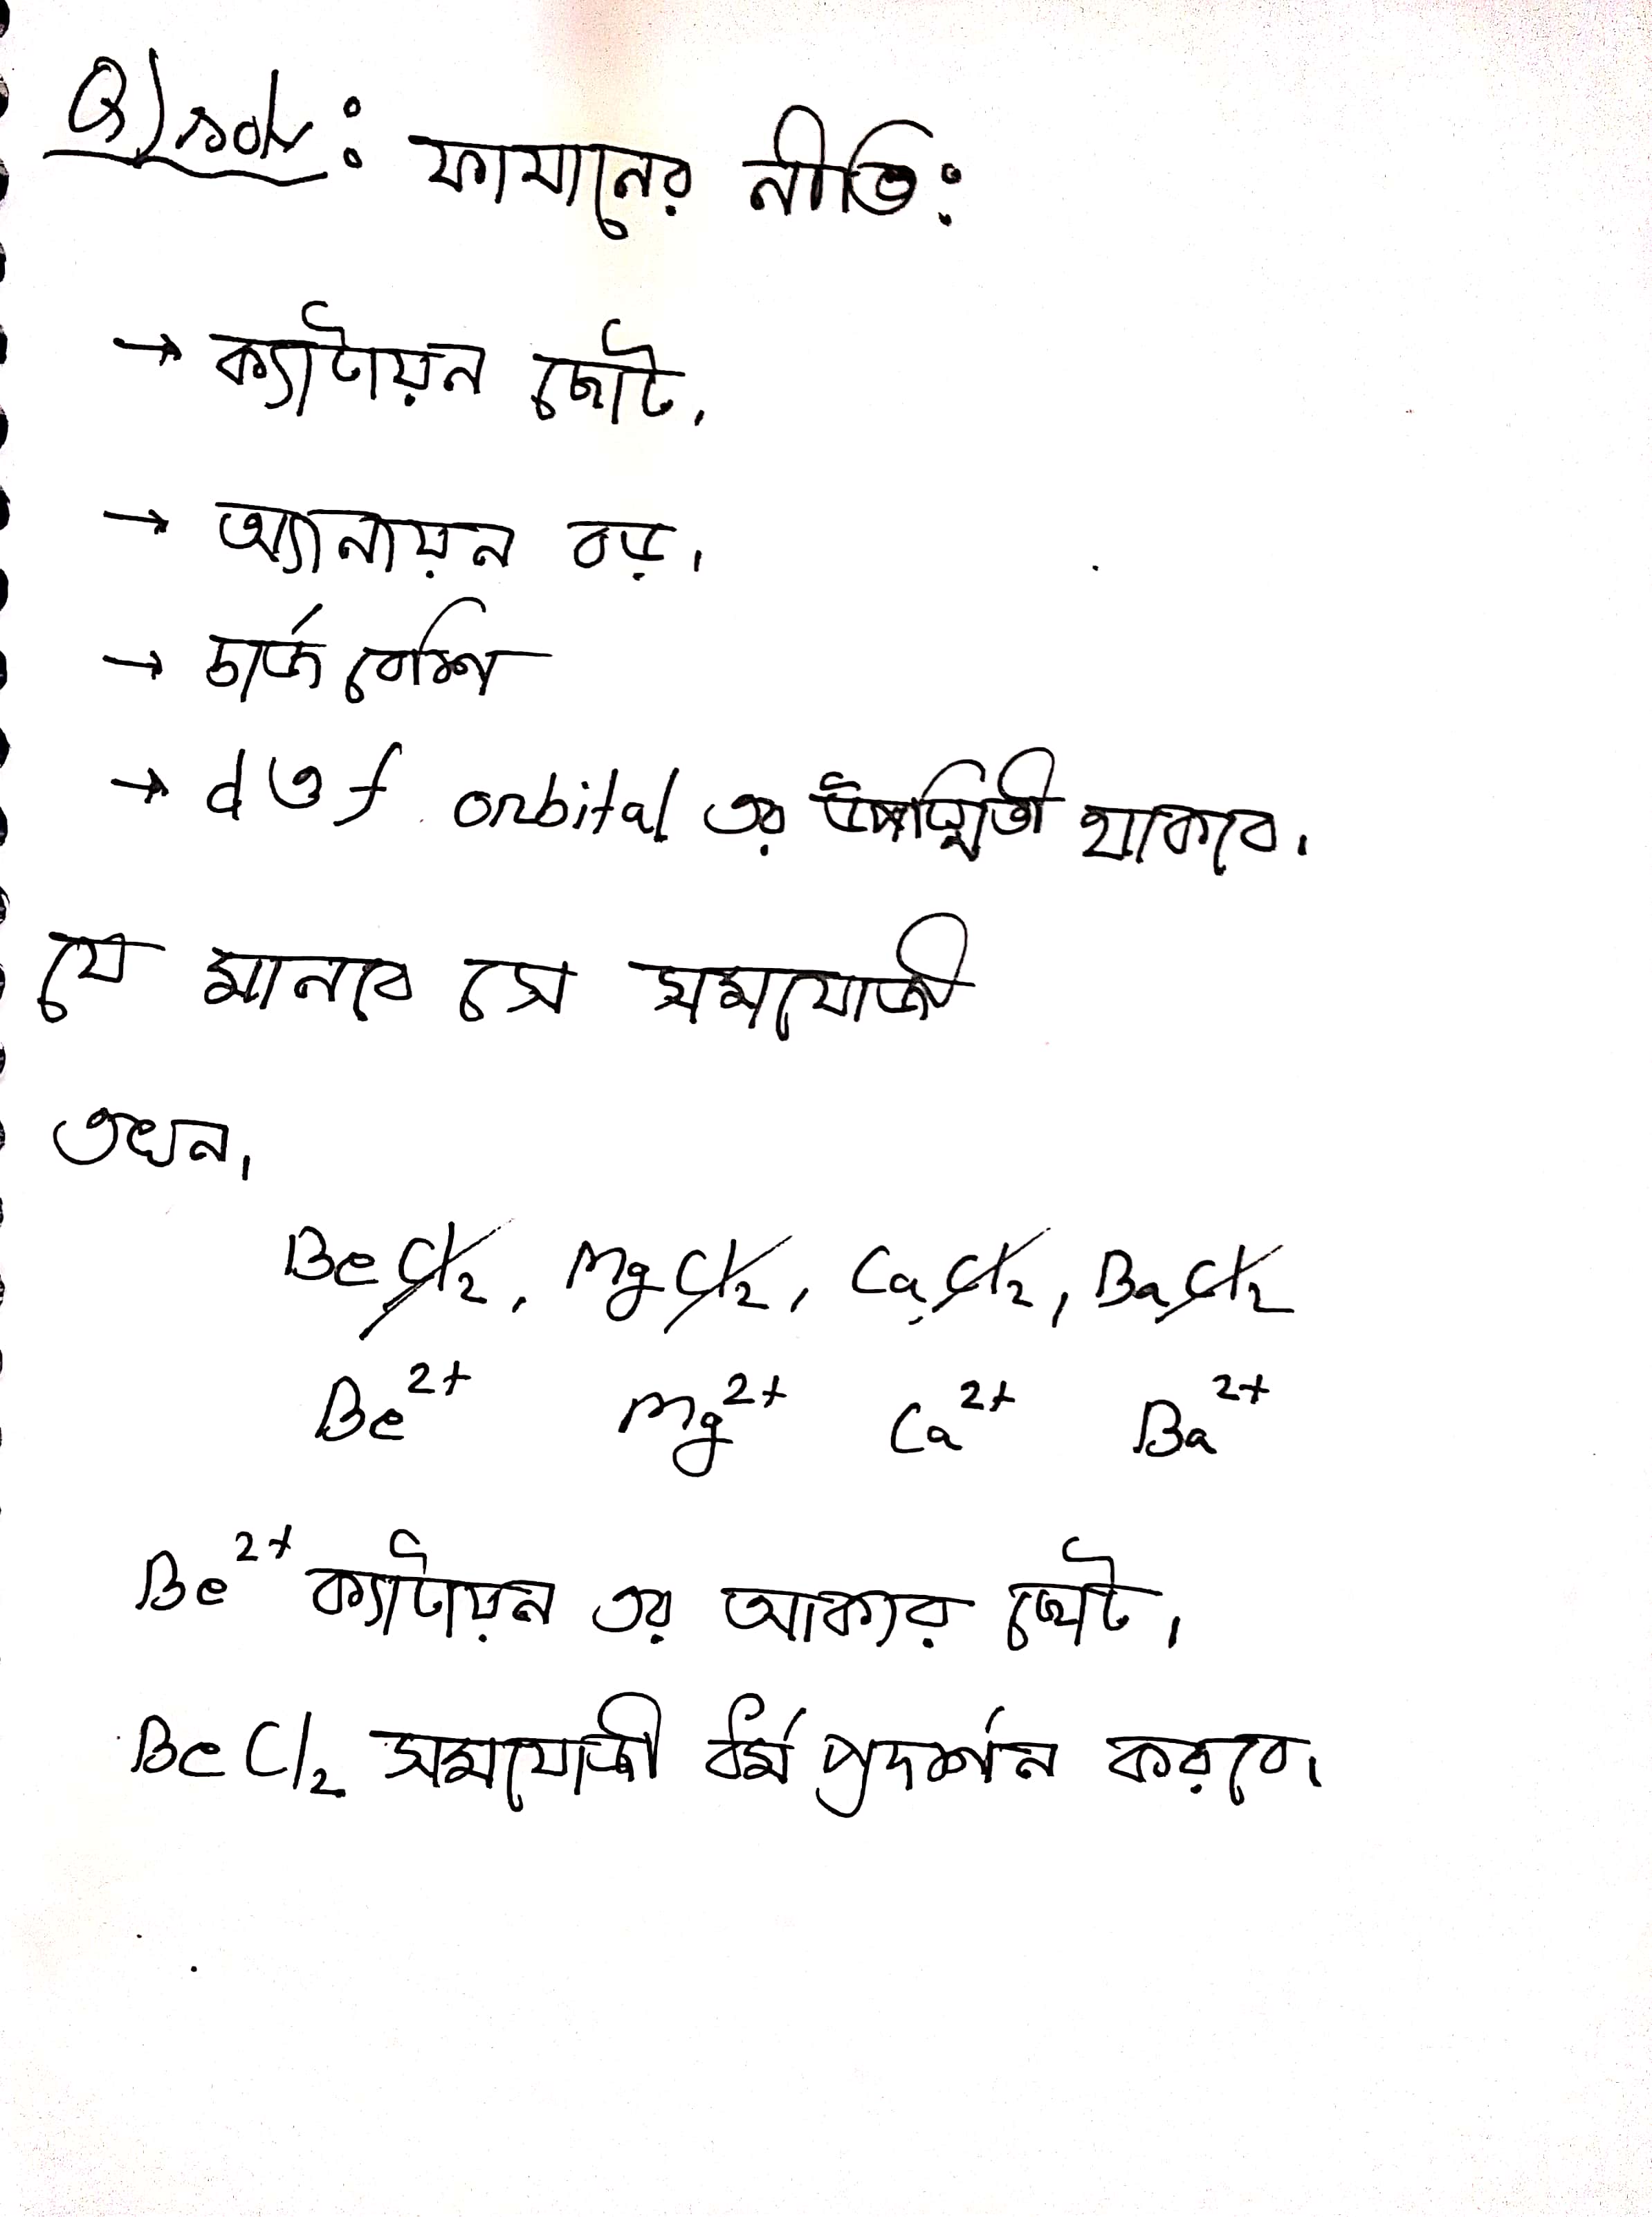 Q) solv: ফাযানের নীতি:
→ ক্যাটায়ন ছোট।
→ অ্যানায়ন বড়।
→ চার্জ বেশি
→ d ও f orbital এর উপস্থিতী থাকবে।
যে মানবে সে সমযোজী
তখন,
BeCl₂, MgCl₂, CaCl₂, BaCl₂
Be²⁺ Mg²⁺ Ca²⁺ Ba²⁺
Be²⁺ ক্যাটায়ন এর আকার ছোট।
BeCl₂ সমযোজী ধর্ম প্রদর্শন করবে।